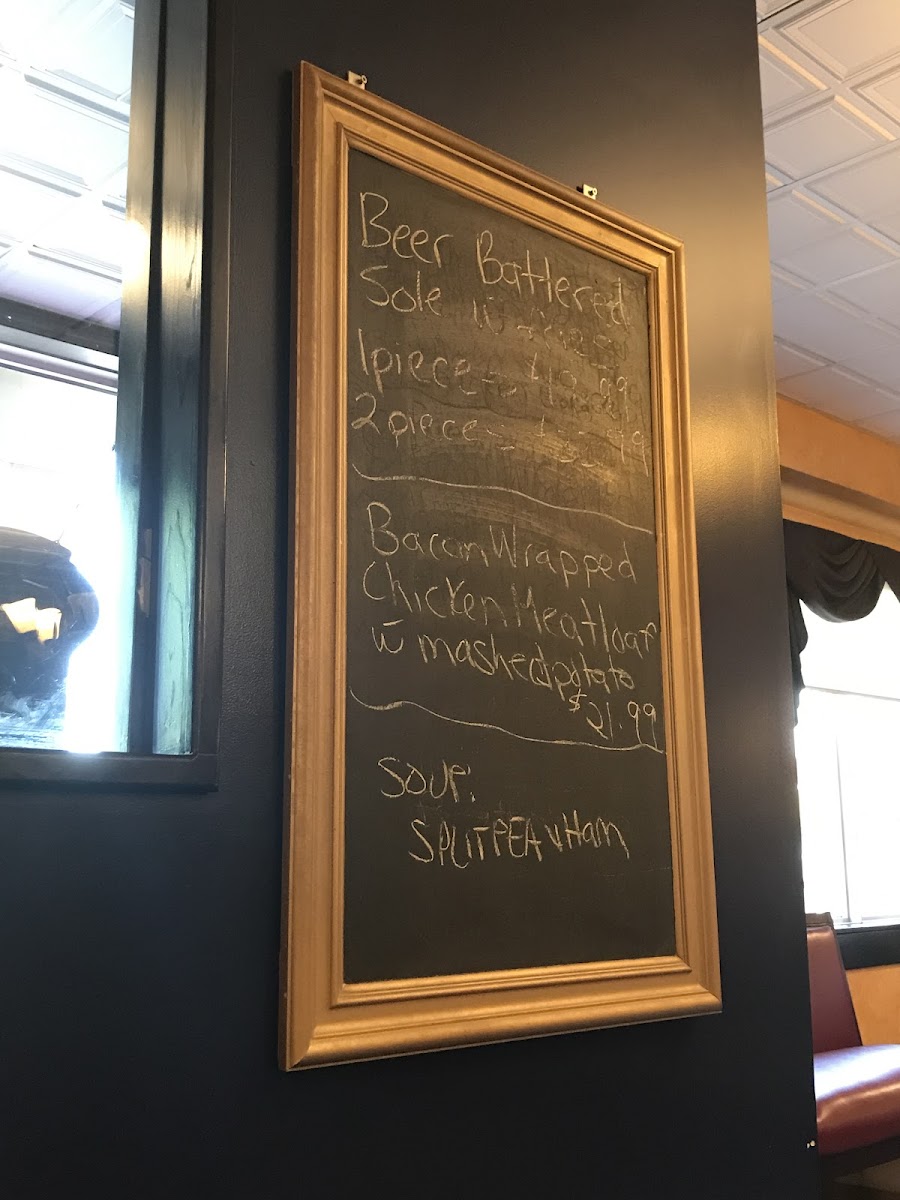 Beer Battered
Sole w̄
1piece - $18.99
2piece -
Bacon Wrapped
Chicken Meatloaf
w̄ mashed potato
$21.99
SOUP:
SPLIT PEA w Ham